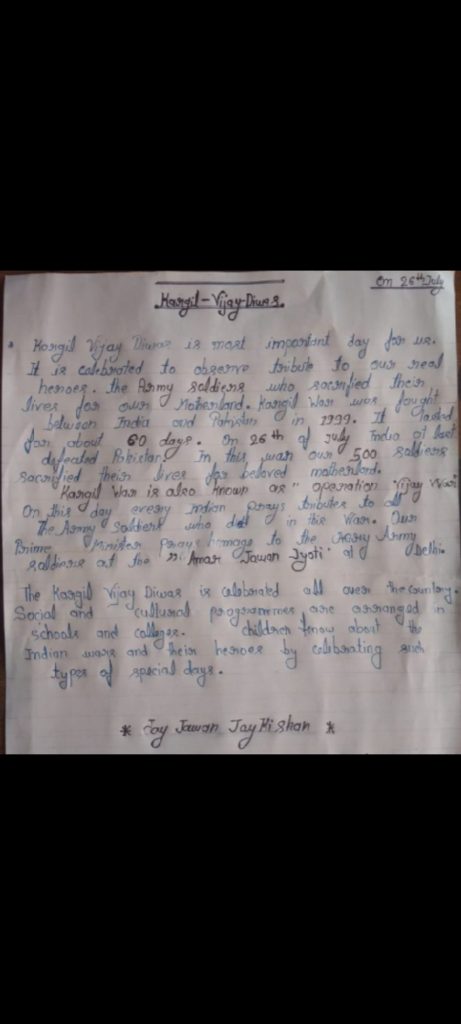 On 26th July
Kargil-Vijay-Diwas.
Kargil Vijay Diwas is most important day for us.
It is calebrated to observe tribute to our real
heroes. the Army soldiers who sacrified their
lives for our Motherland. Kargil War was fought
between India and Pakistan in 1999. It lasted
for about 60 days. On 26th of July India at last
defeated Pakistan. In this war our 500 soldiers
sacrified their lives for beloved motherland.
Kargil War is also known as "operation Vijay War"
On this day every Indian prays tributes to all
The Army Soldiers who died in the War. Our
Prime Minister prays homage to the Army
soldiers at the "Amar Jawan Jyoti" at Delhi.
The Kargil Vijay Diwas is calebrated all over the country.
Social and cultural programmes are arranged in
schools and colleges. children know about the
Indian wars and their heroes by calibrating such
types of special days.
* Jay Jawan Jay Kishan *